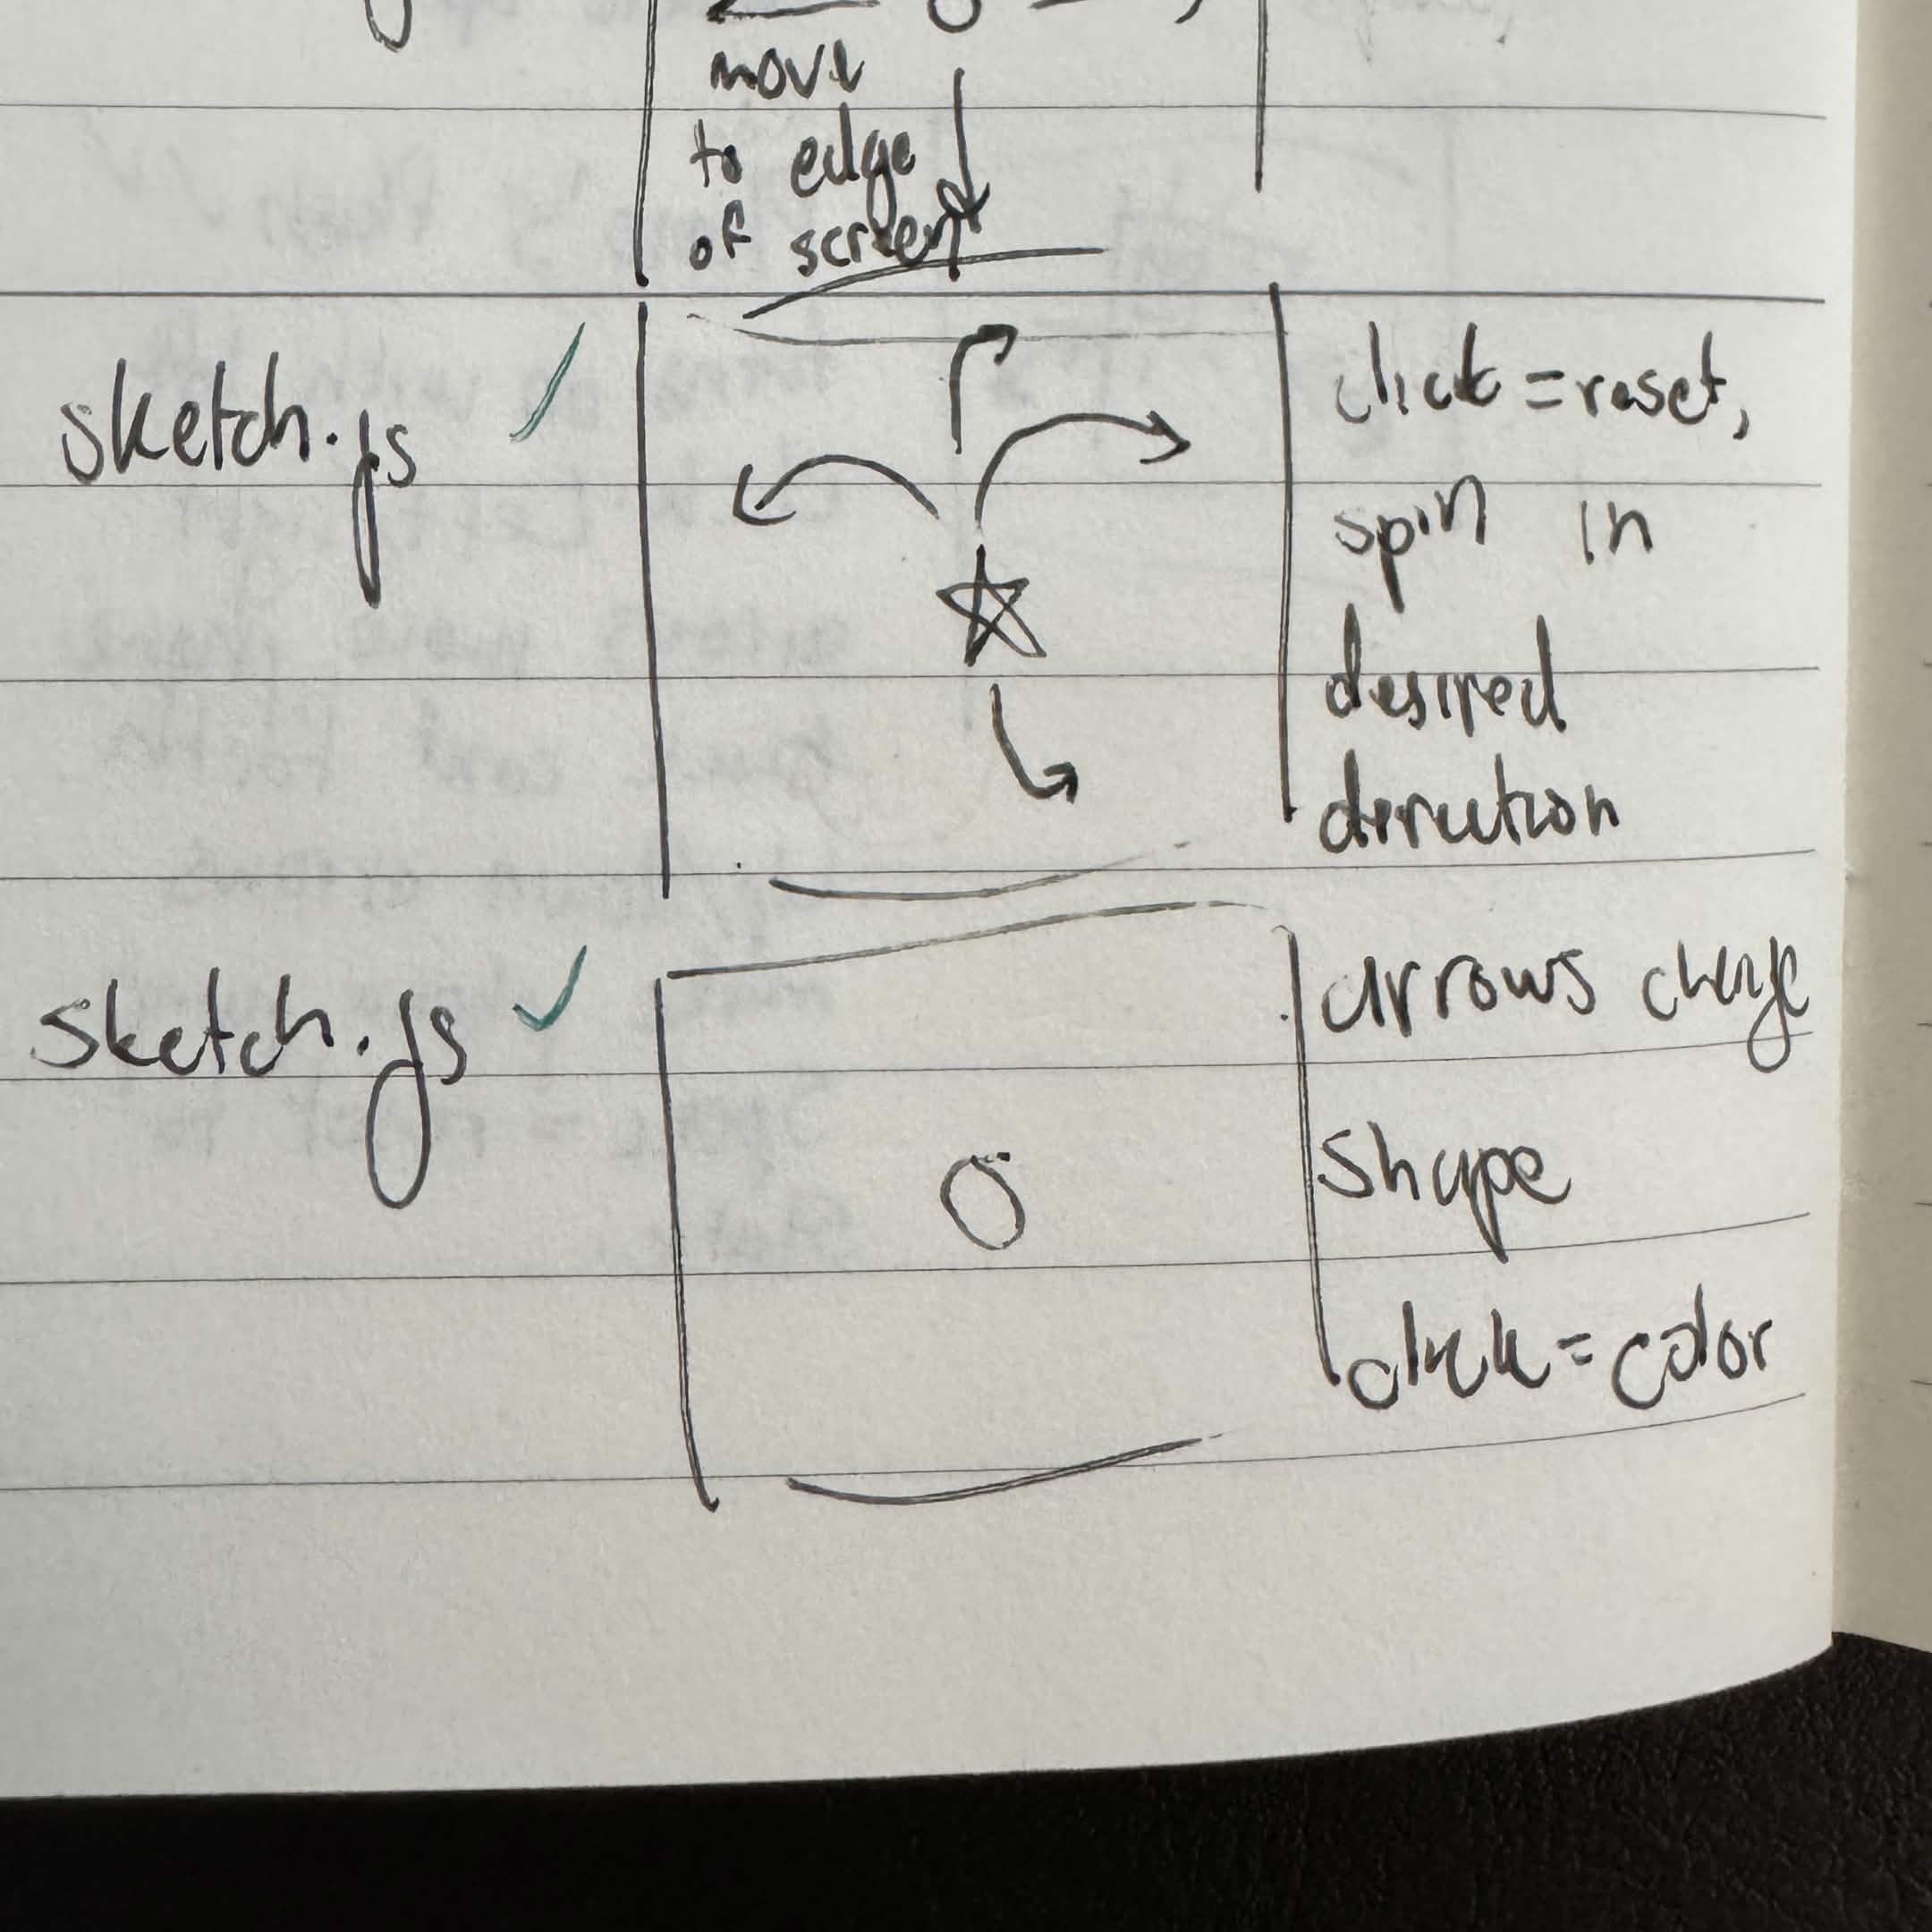 move
to edge
of screen
sketch.js ✓
click = reset,
spin in
desired
direction
sketch.js ✓
arrows change
shape
click = color